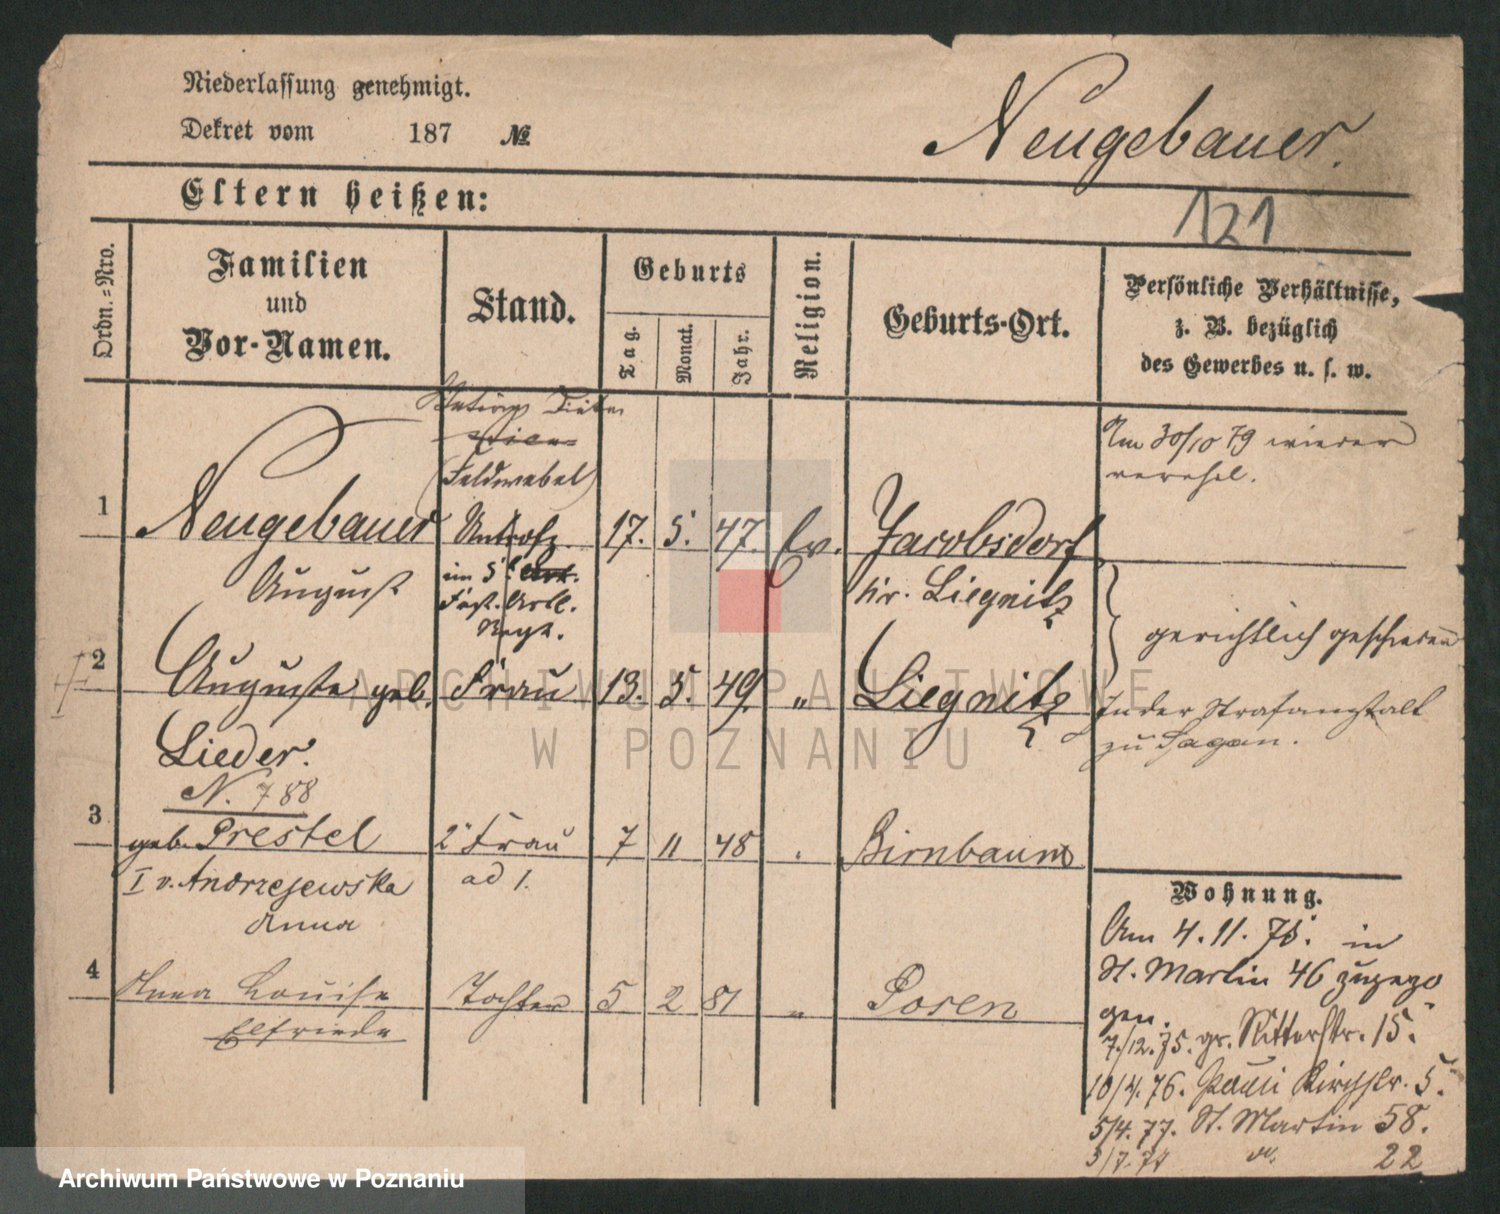 Niederlassung genehmigt.
Dekret vom 187 №
Neugebauer.
121
Eltern heißen:
Ordn.-Nro.
Familien
und
Vor-Namen.
Stand.
Geburts
Tag.
Monat.
Jahr.
Religion.
Geburts-Ort.
Persönliche Verhältnisse,
z. B. bezüglich
des Gewerbes u. s. w.
Am 30/10 79 wieder
verehel.
(Feldwebel)
1 Neugebauer Untroffz. 17. 5. 47. Ev. Jacobsdorf
August im 5t. Art. Kr. Liegnitz
Fest. Artl.
Regt.
gerichtlich geschieden
2 Auguste geb. Frau 13. 5. 49. " Liegnitz
In der Strafanstalt
zu Sagan.
Lieder.
N. 788
3 geb. Prestel 2t Frau 7 11 48 Birnbaum
I v. Andrzejewska ad 1.
Anna
Wohnung.
Am 4. 11. 75. in
St. Martin 46 zugezo
gen.
4 Anna Louise Tochter 5 2 81 " Posen
Elfriede
7./12. 75. gr. Ritterstr. 15.
10/4. 76. Pauli Kirchstr. 5.
5/4. 77. St. Martin 58.
do. 22
ARCHIWUM PAŃSTWOWE
W POZNANIU
Archiwum Państwowe w Poznaniu